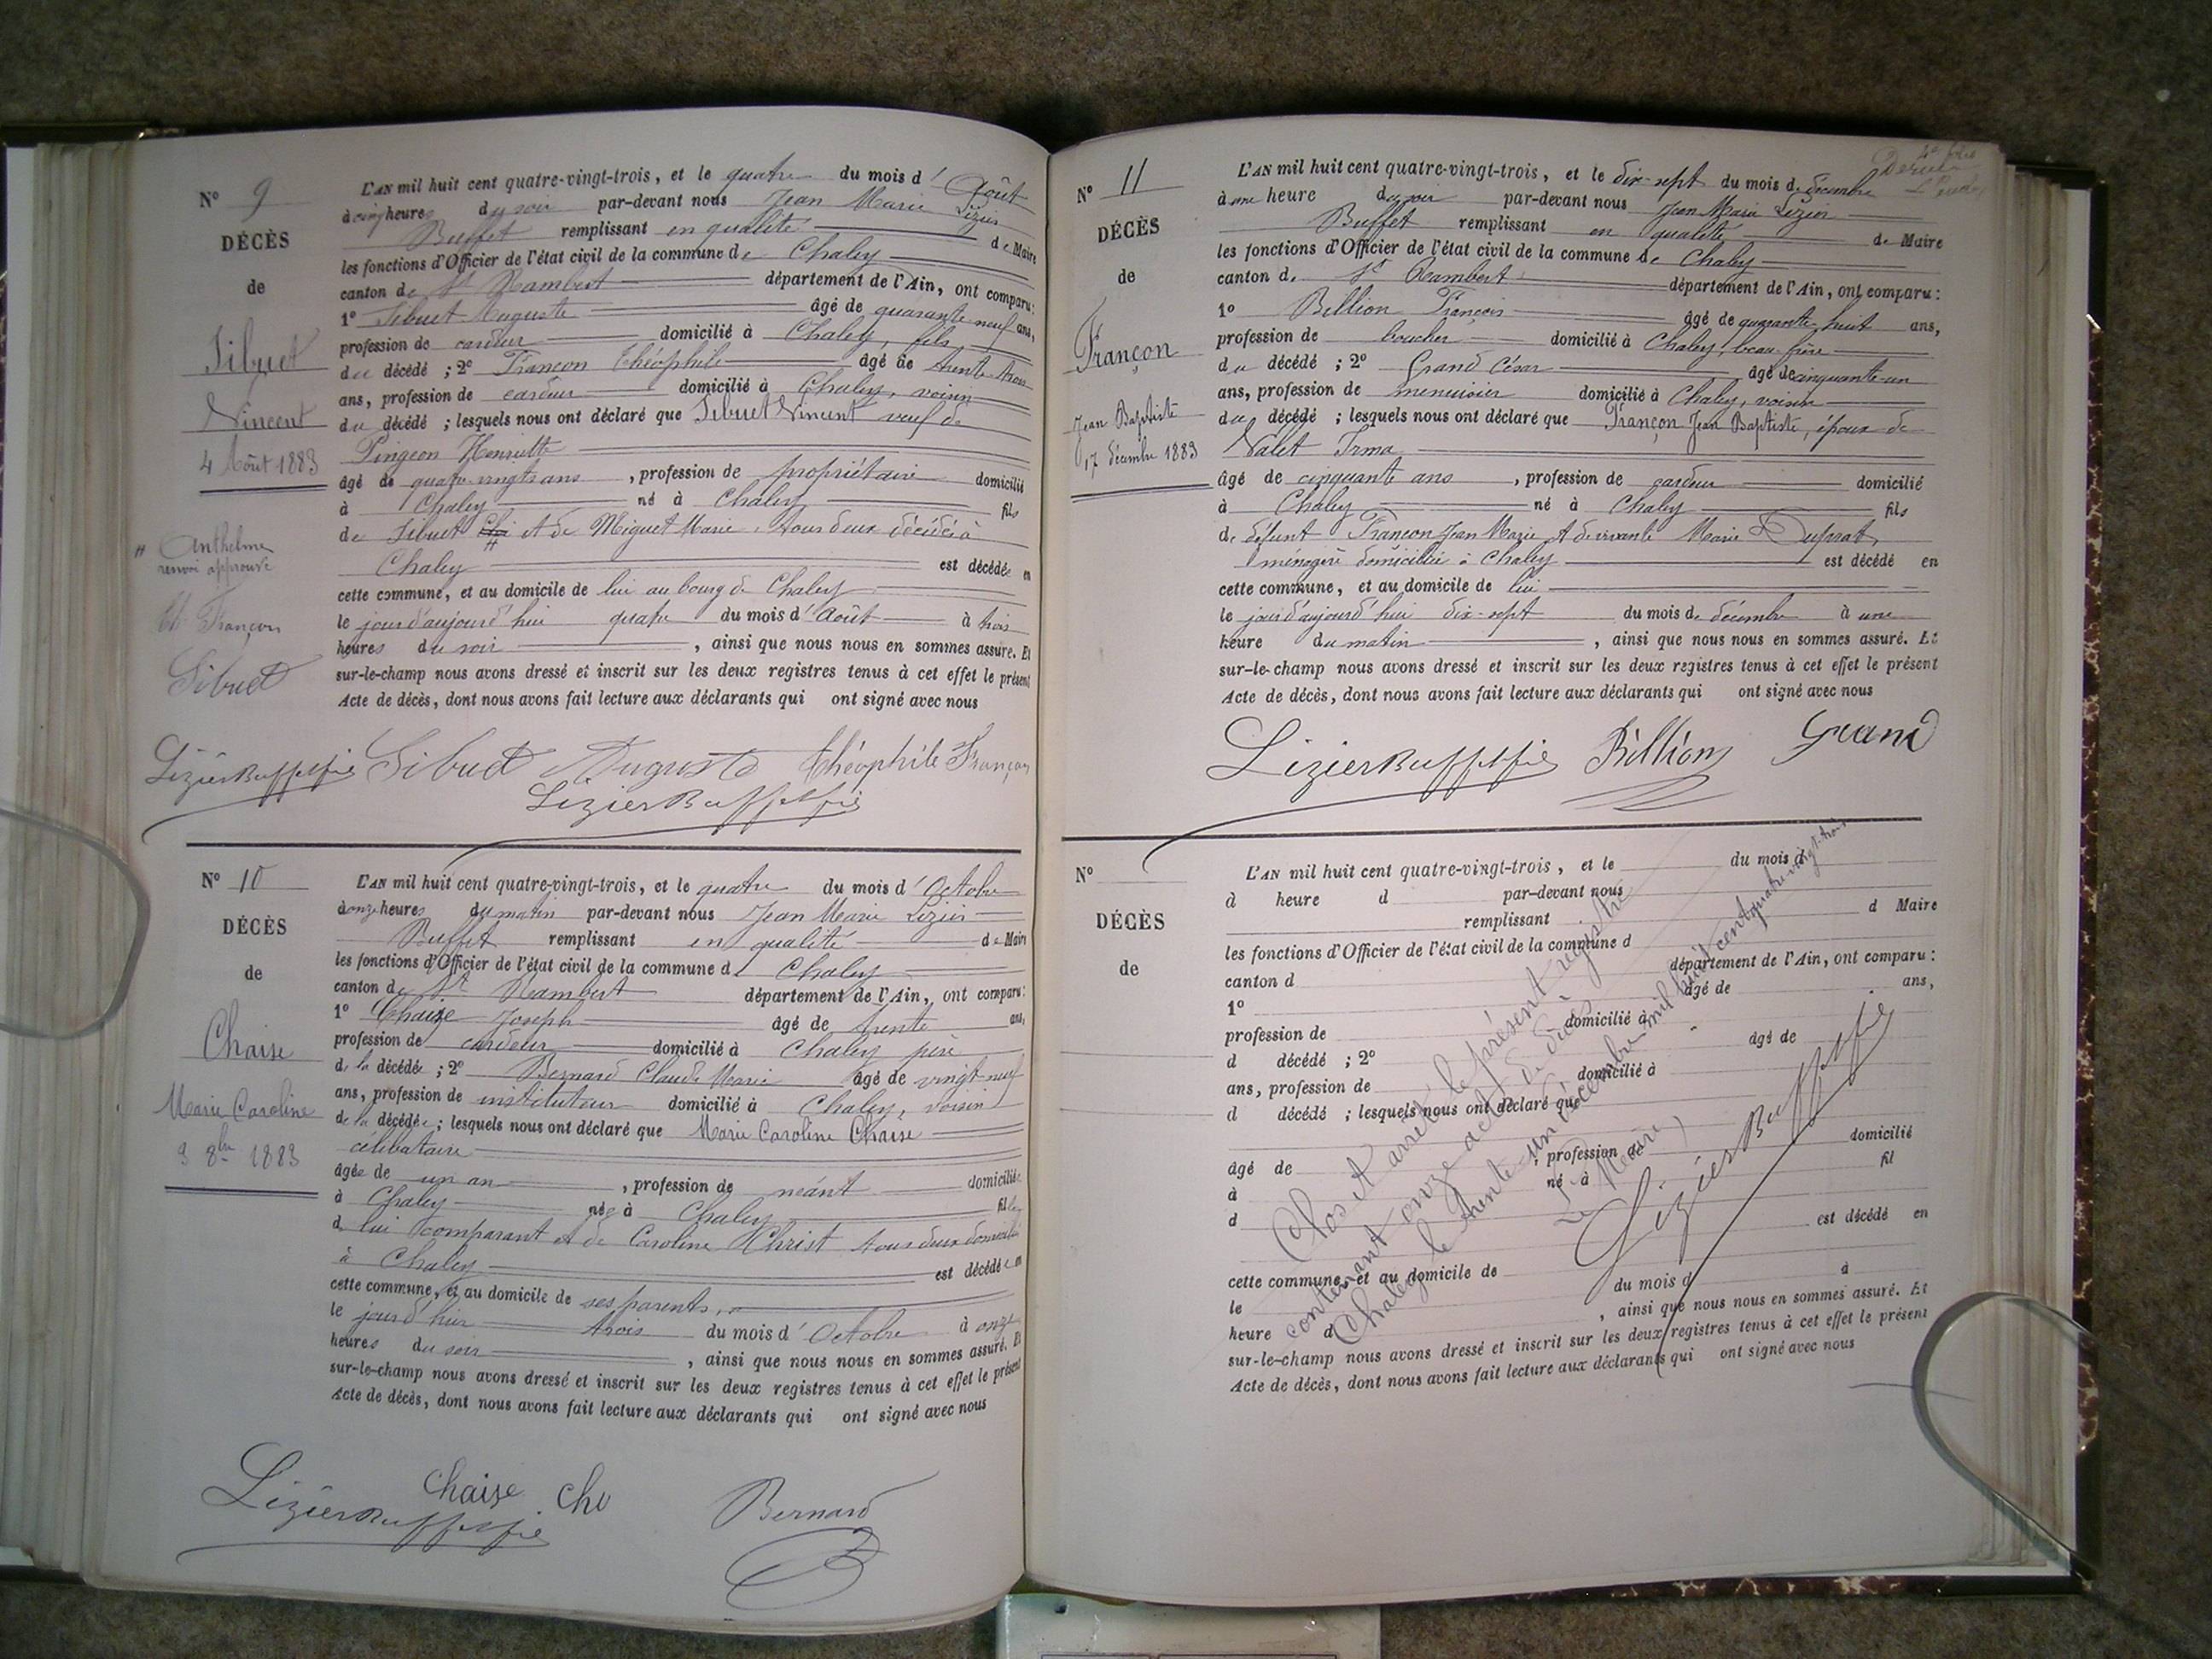 N° 9
DÉCÈS
de
Sibuet
Vincent
4 Août 1883
L'AN mil huit cent quatre-vingt-trois, et le quatre du mois d'Août
à cinq heures du soir par-devant nous Jean Marie Lizier
Buffet remplissant en qualité de Maire
les fonctions d'Officier de l'état civil de la commune de Chaley
canton de St Rambert département de l'Ain, ont comparu:
1° Sibuet Auguste âgé de quarante neuf ans,
profession de cardeur domicilié à Chaley, fils
du décédé ; 2° Françon Théophile âgé de trente-trois
ans, profession de cardeur domicilié à Chaley, voisin
du décédé ; lesquels nous ont déclaré que Sibuet Vincent veuf de
Pingeon Henriette
âgé de quatre-vingts ans , profession de propriétaire domicilié
à Chaley né à Chaley fils
de Sibuet # et de Miguet Marie, tous deux décédés à
Chaley est décédé en
cette commune, et au domicile de lui au bourg de Chaley
le jour d'aujourd'hui quatre du mois d'Août à trois
heures du soir , ainsi que nous nous en sommes assuré. Et
sur-le-champ nous avons dressé et inscrit sur les deux registres tenus à cet effet le présent
Acte de décès, dont nous avons fait lecture aux déclarants qui ont signé avec nous
# Anthelme
renvoi approuvé
Th Françon
Sibuet
LizierBuffet fie Sibuet Auguste Théophile Françon
LizierBuffet fie
N° 10
DÉCÈS
de
Chaise
Marie Caroline
3 8bre 1883
L'AN mil huit cent quatre-vingt-trois, et le quatre du mois d'Octobre
à onze heures du matin par-devant nous Jean Marie Lizier
Buffet remplissant en qualité de Maire
les fonctions d'Officier de l'état civil de la commune de Chaley
canton de St Rambert département de l'Ain, ont comparu:
1° Chaize Joseph âgé de trente ans,
profession de cardeur domicilié à Chaley père
de la décédée ; 2° Bernard Claude Marie âgé de vingt-neuf
ans, profession de instituteur domicilié à Chaley, voisin
de la décédée ; lesquels nous ont déclaré que Marie Caroline Chaise
célibataire
âgée de un an , profession de néant domiciliée
à Chaley née à Chaley fille
de lui comparant et de Caroline Christ tous deux domiciliés
à Chaley est décédée en
cette commune, et au domicile de ses parents,
le jour d'hier trois du mois d'Octobre à onze
heures du soir , ainsi que nous nous en sommes assuré. Et
sur-le-champ nous avons dressé et inscrit sur les deux registres tenus à cet effet le présent
Acte de décès, dont nous avons fait lecture aux déclarants qui ont signé avec nous
LizierBuffet fie Chaize Bernard
N° 11
DÉCÈS
de
Françon
Jean Baptiste
17 décembre 1883
L'AN mil huit cent quatre-vingt-trois, et le dix-sept du mois de décembre
à une heure du soir par-devant nous Jean Marie Lizier
Buffet remplissant en qualité de Maire
les fonctions d'Officier de l'état civil de la commune de Chaley
canton de St Rambert département de l'Ain, ont comparu:
1° Billion François âgé de quarante-huit ans,
profession de boucher domicilié à Chaley, beau-frère
du décédé ; 2° Grand César âgé de cinquante-un
ans, profession de menuisier domicilié à Chaley, voisin
du décédé ; lesquels nous ont déclaré que Françon Jean Baptiste, époux de
Valet Irma
âgé de cinquante ans , profession de cardeur domicilié
à Chaley né à Chaley fils
de défunt Françon Jean Marie et de vivante Marie Duprat,
ménagère domiciliée à Chaley est décédé en
cette commune, et au domicile de lui
le jour d'aujourd'hui dix-sept du mois de décembre à une
heure du matin , ainsi que nous nous en sommes assuré. Et
sur-le-champ nous avons dressé et inscrit sur les deux registres tenus à cet effet le présent
Acte de décès, dont nous avons fait lecture aux déclarants qui ont signé avec nous
LizierBuffet fie Billion Grand
N°
DÉCÈS
de
L'AN mil huit cent quatre-vingt-trois, et le du mois d
à heure d par-devant nous
remplissant d Maire
les fonctions d'Officier de l'état civil de la commune d
canton d département de l'Ain, ont comparu:
1° âgé de ans,
profession de domicilié à
d décédé ; 2° âgé de
ans, profession de domicilié à
d décédé ; lesquels nous ont déclaré que
âgé de , profession de domicilié
à né à fil
d est décédé en
cette commune, et au domicile de
le du mois d à
heure d , ainsi que nous nous en sommes assuré. Et
sur-le-champ nous avons dressé et inscrit sur les deux registres tenus à cet effet le présent
Acte de décès, dont nous avons fait lecture aux déclarants qui ont signé avec nous
Clos et arrêté le présent registre
contenant onze actes de décès
Chaley le trente-un décembre mil huit cent quatre-vingt-trois
Le Maire
LizierBuffet fie